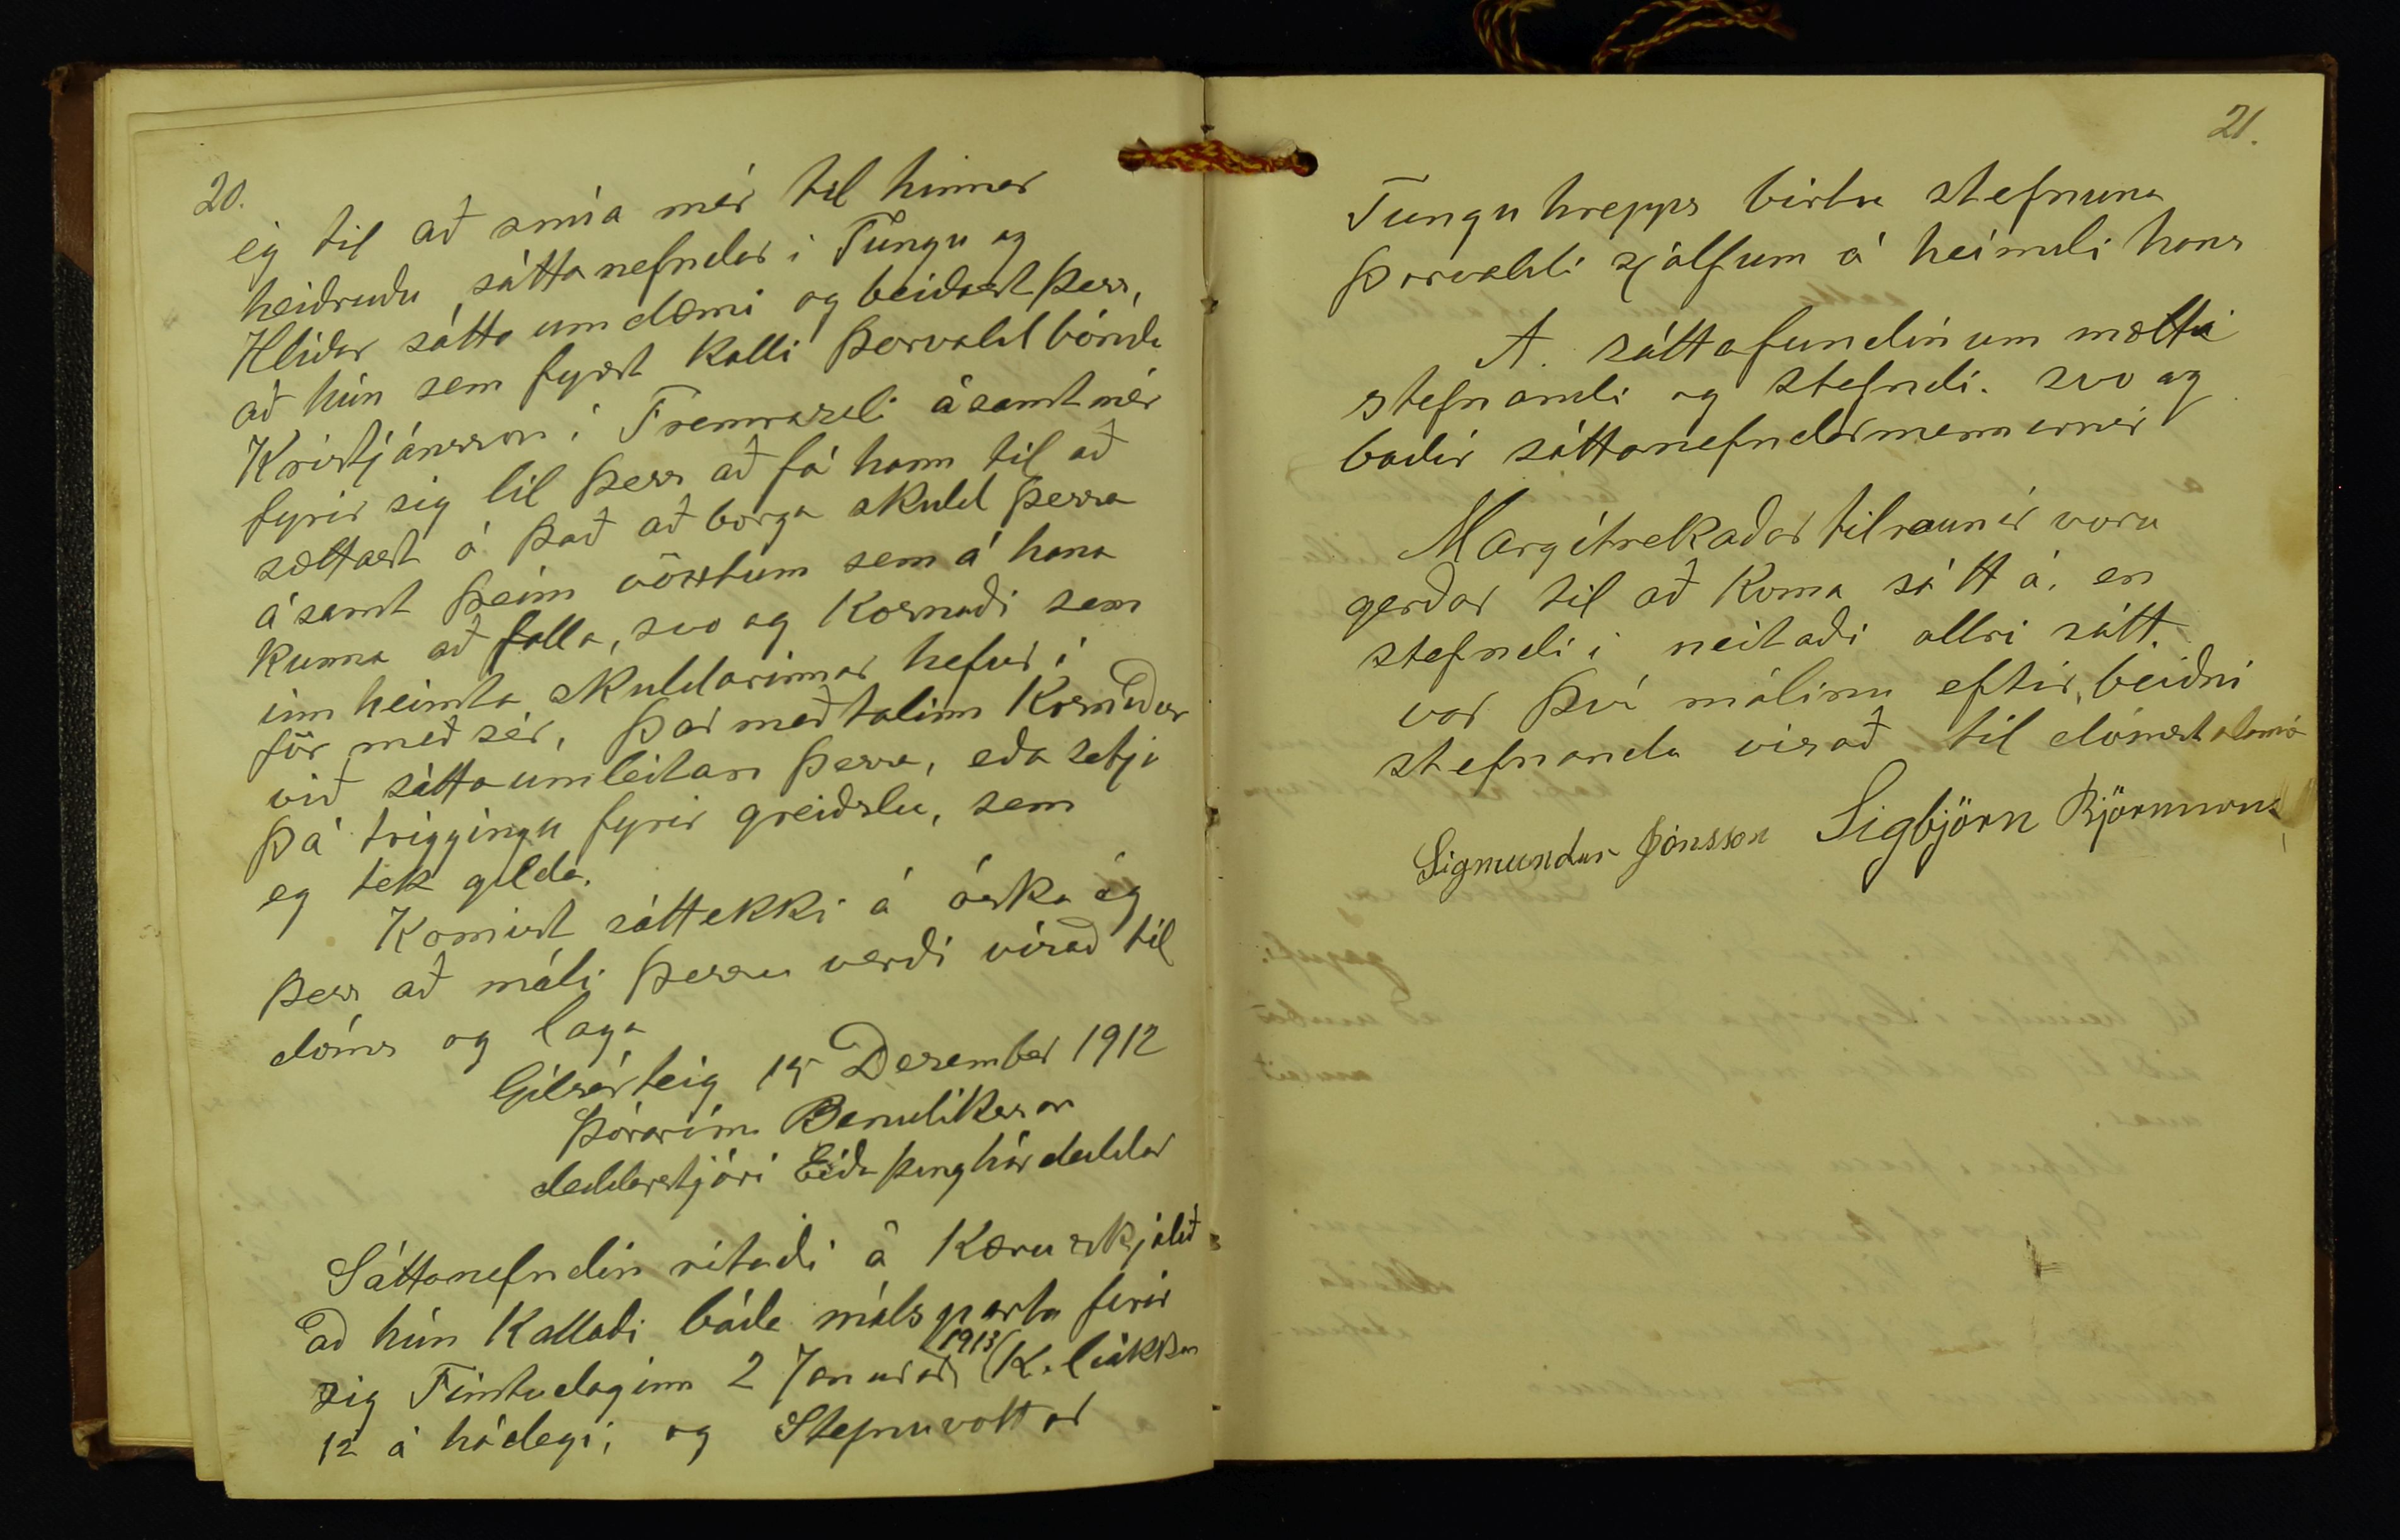 20.
eg til að snúa mér til hinnar
heiðruðu sáttanefndar í Tungu og
Hlíðar sátta umdæmi og beiðast þess,
að hún sem fyrst kalli Þorvald bónda
Kristjánsson í Fremraseli ásamt mér
fyrir sig til þess að fá hann til að
sættast á það að borga skuld þessa
ásamt þeim vöxtum sem á hana
kunna að falla, svo og kostnaði sem
inn heimta skuldarinnar hefur í
för með sér, þar með talinn Kostnaður
við sátta umleitan þessa, eða setja
þá triggingu fyrir greiðslu, sem
eg tek gilda.
Komist sátt ekki á óska ég
þess að máli þessu verði vísað til
dóms og laga
Gilsárteig 15 Desember 1912
Þórarinn Benidiktsson
deildarstjóri Eiðaþinghárdeildar
Sáttanefndin ritaði á Kæruskjalið
að hún Kallaði báða málsparta firir
sig Fimtudaginn 2 Janúar 1913 K. liukkan
12 á hádegi, og Stefnuvottar
21.
Tunguhrepps birtu stefnuna
Þorvaldi sjálfum á heimili hans
Á sáttafundinum mætti
stefnandi og stefndi. svo og
badir sáttanefndarmennirnir
Margítrekaðar tilraunir voru
gerðar til að Koma sátt á. en
stefndi i neitaði allri sátt.
var því málinu eftir beiðni
stefnanda vísað til dómstolana
Sigmundur Jónsson Sigbjörn Björnsson